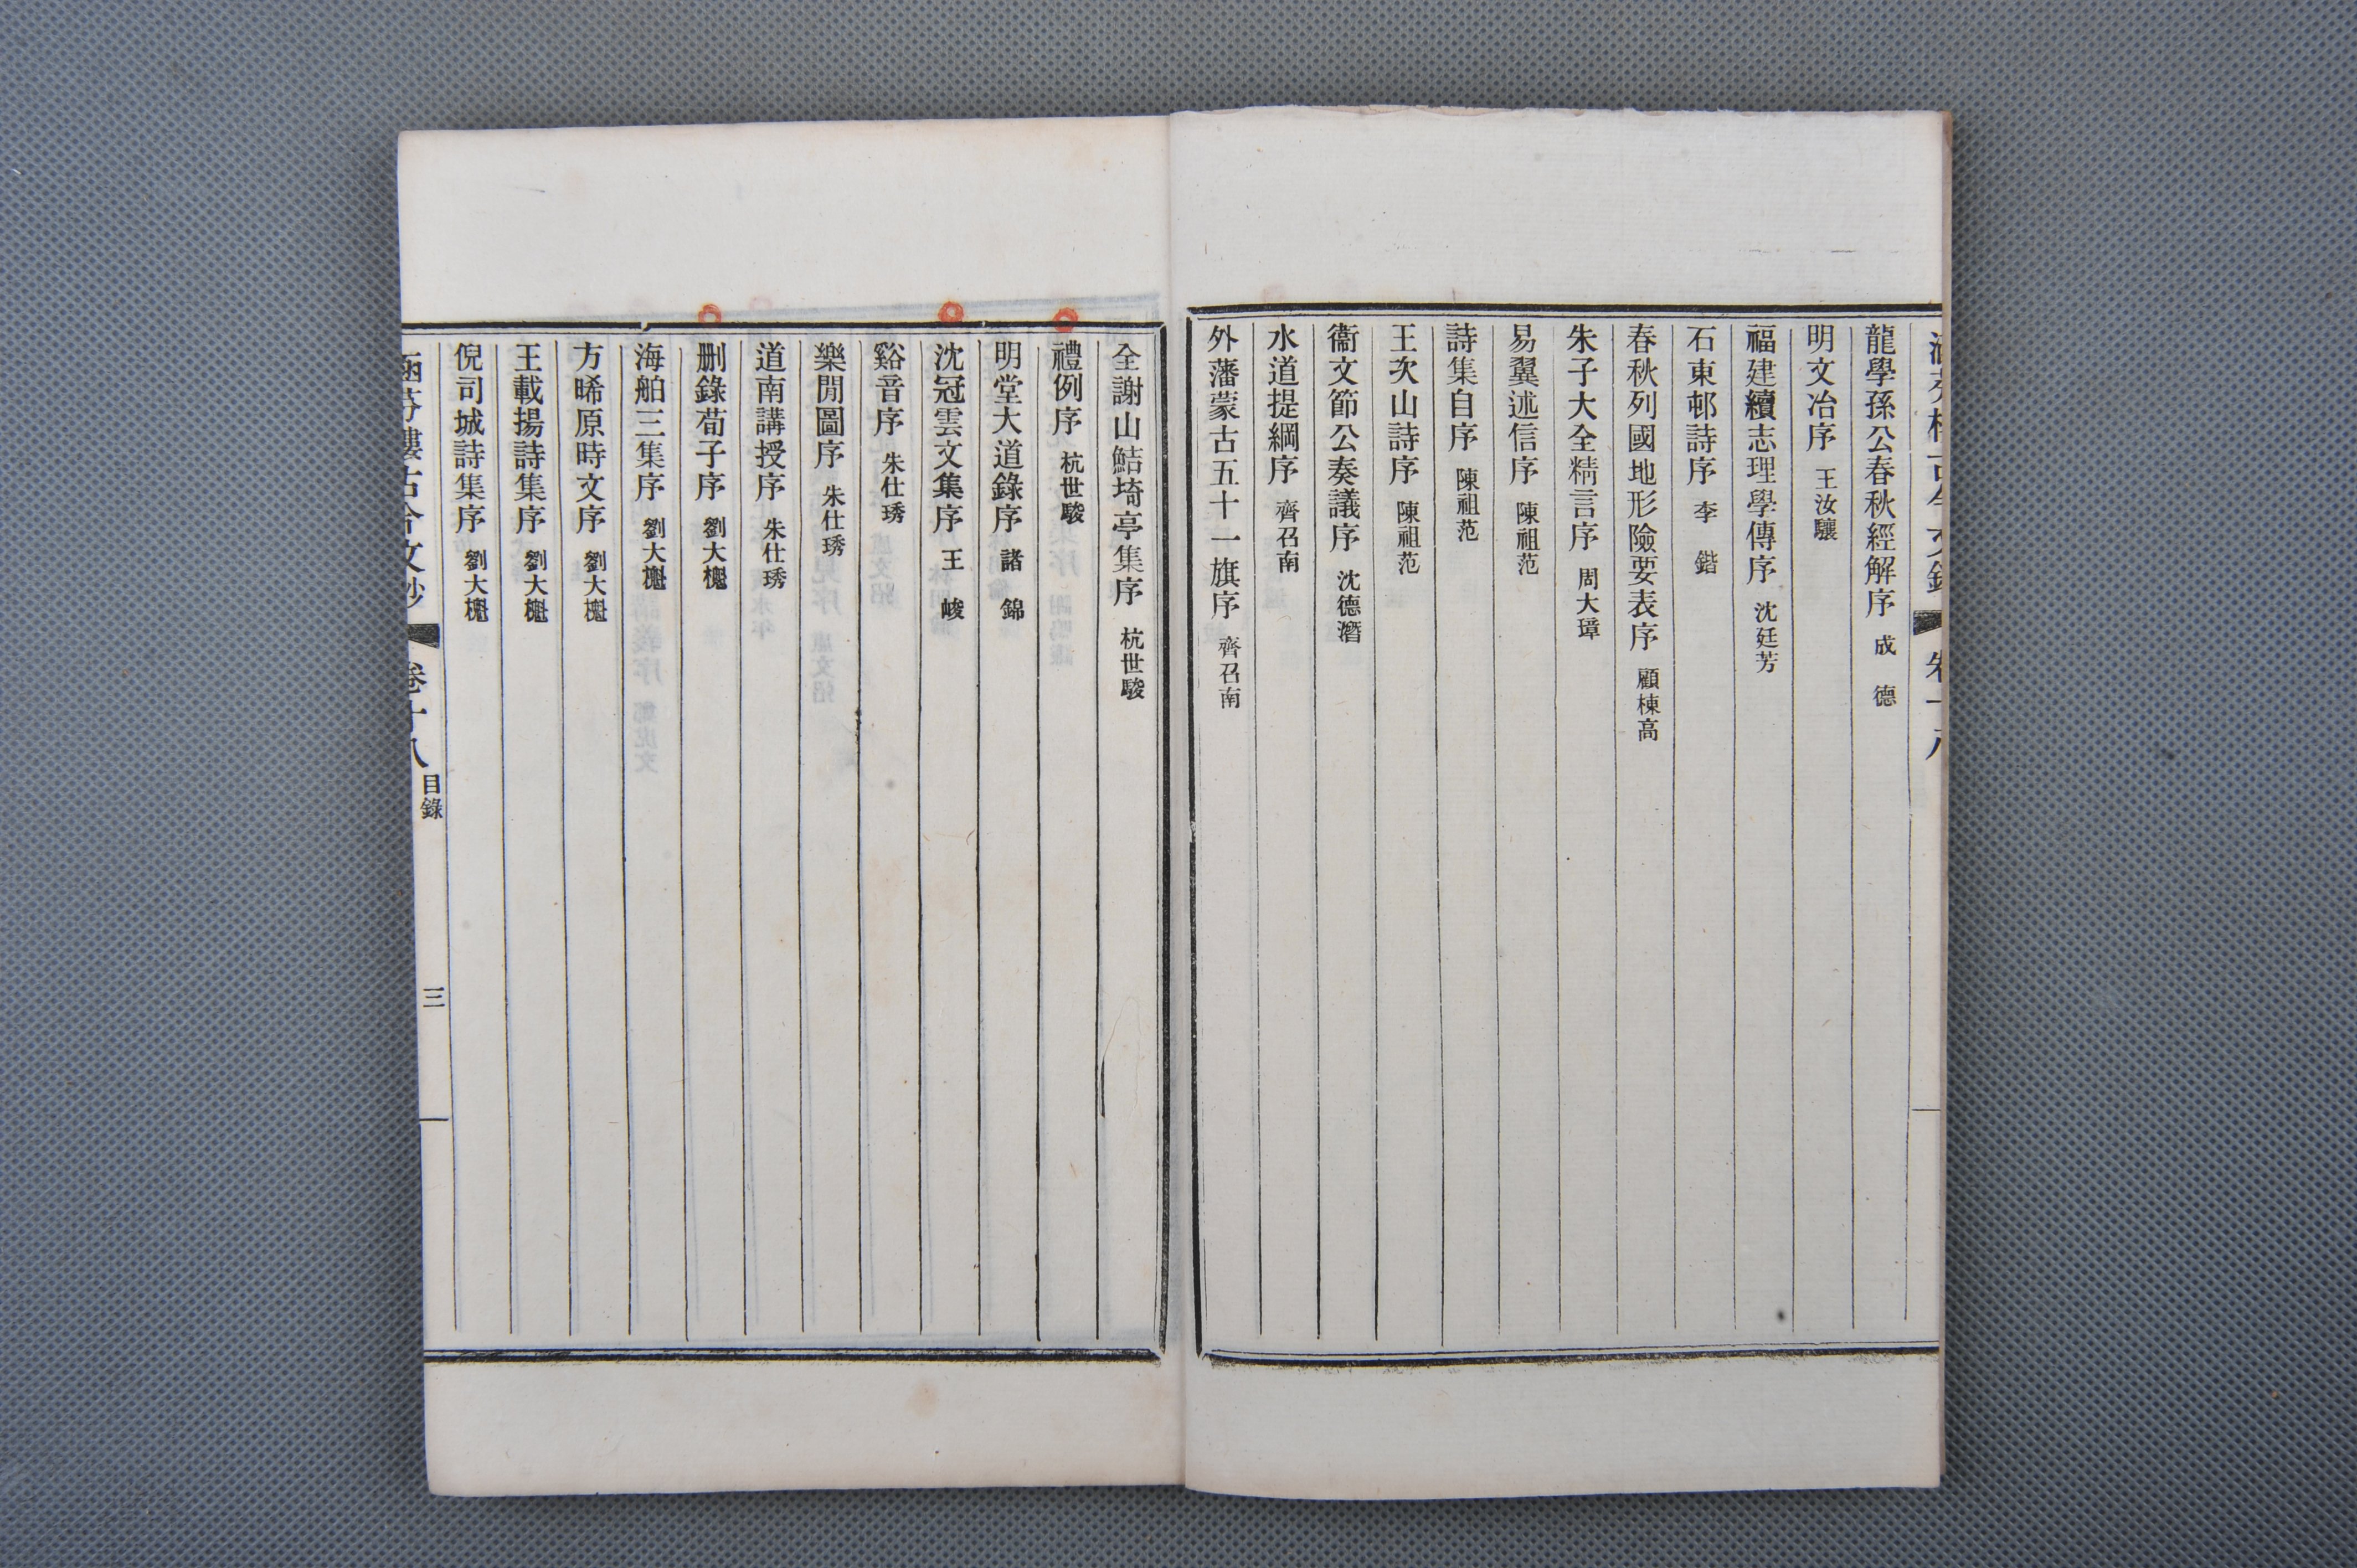 龍學孫公春秋經解序 成 德
明文冶序 王汝驤
福建續志理學傳序 沈廷芳
石東邨詩序 李 鍇
春秋列國地形險要表序 顧棟高
朱子大全精言序 周大璋
易翼述信序 陳祖范
詩集自序 陳祖范
王次山詩序 陳祖范
衞文節公奏議序 沈德潛
水道提綱序 齊召南
外藩蒙古五十一旗序 齊召南
全謝山鮚埼亭集序 杭世駿
禮例序 杭世駿
明堂大道錄序 諸 錦
沈冠雲文集序 王 峻
谿音序 朱仕琇
樂閒圖序 朱仕琇
道南講授序 朱仕琇
删錄荀子序 劉大櫆
海舶三集序 劉大櫆
方晞原時文序 劉大櫆
王載揚詩集序 劉大櫆
倪司城詩集序 劉大櫆
涵芬樓古今文鈔 卷十八 目錄 三